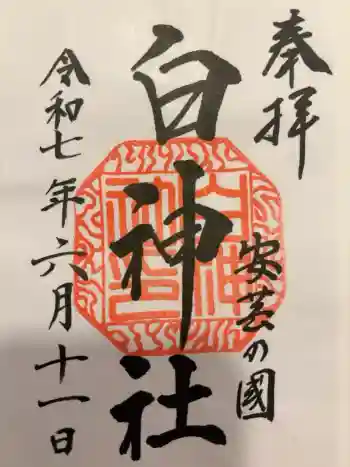 奉拝
安芸の國
白神社
令和七年六月十一日